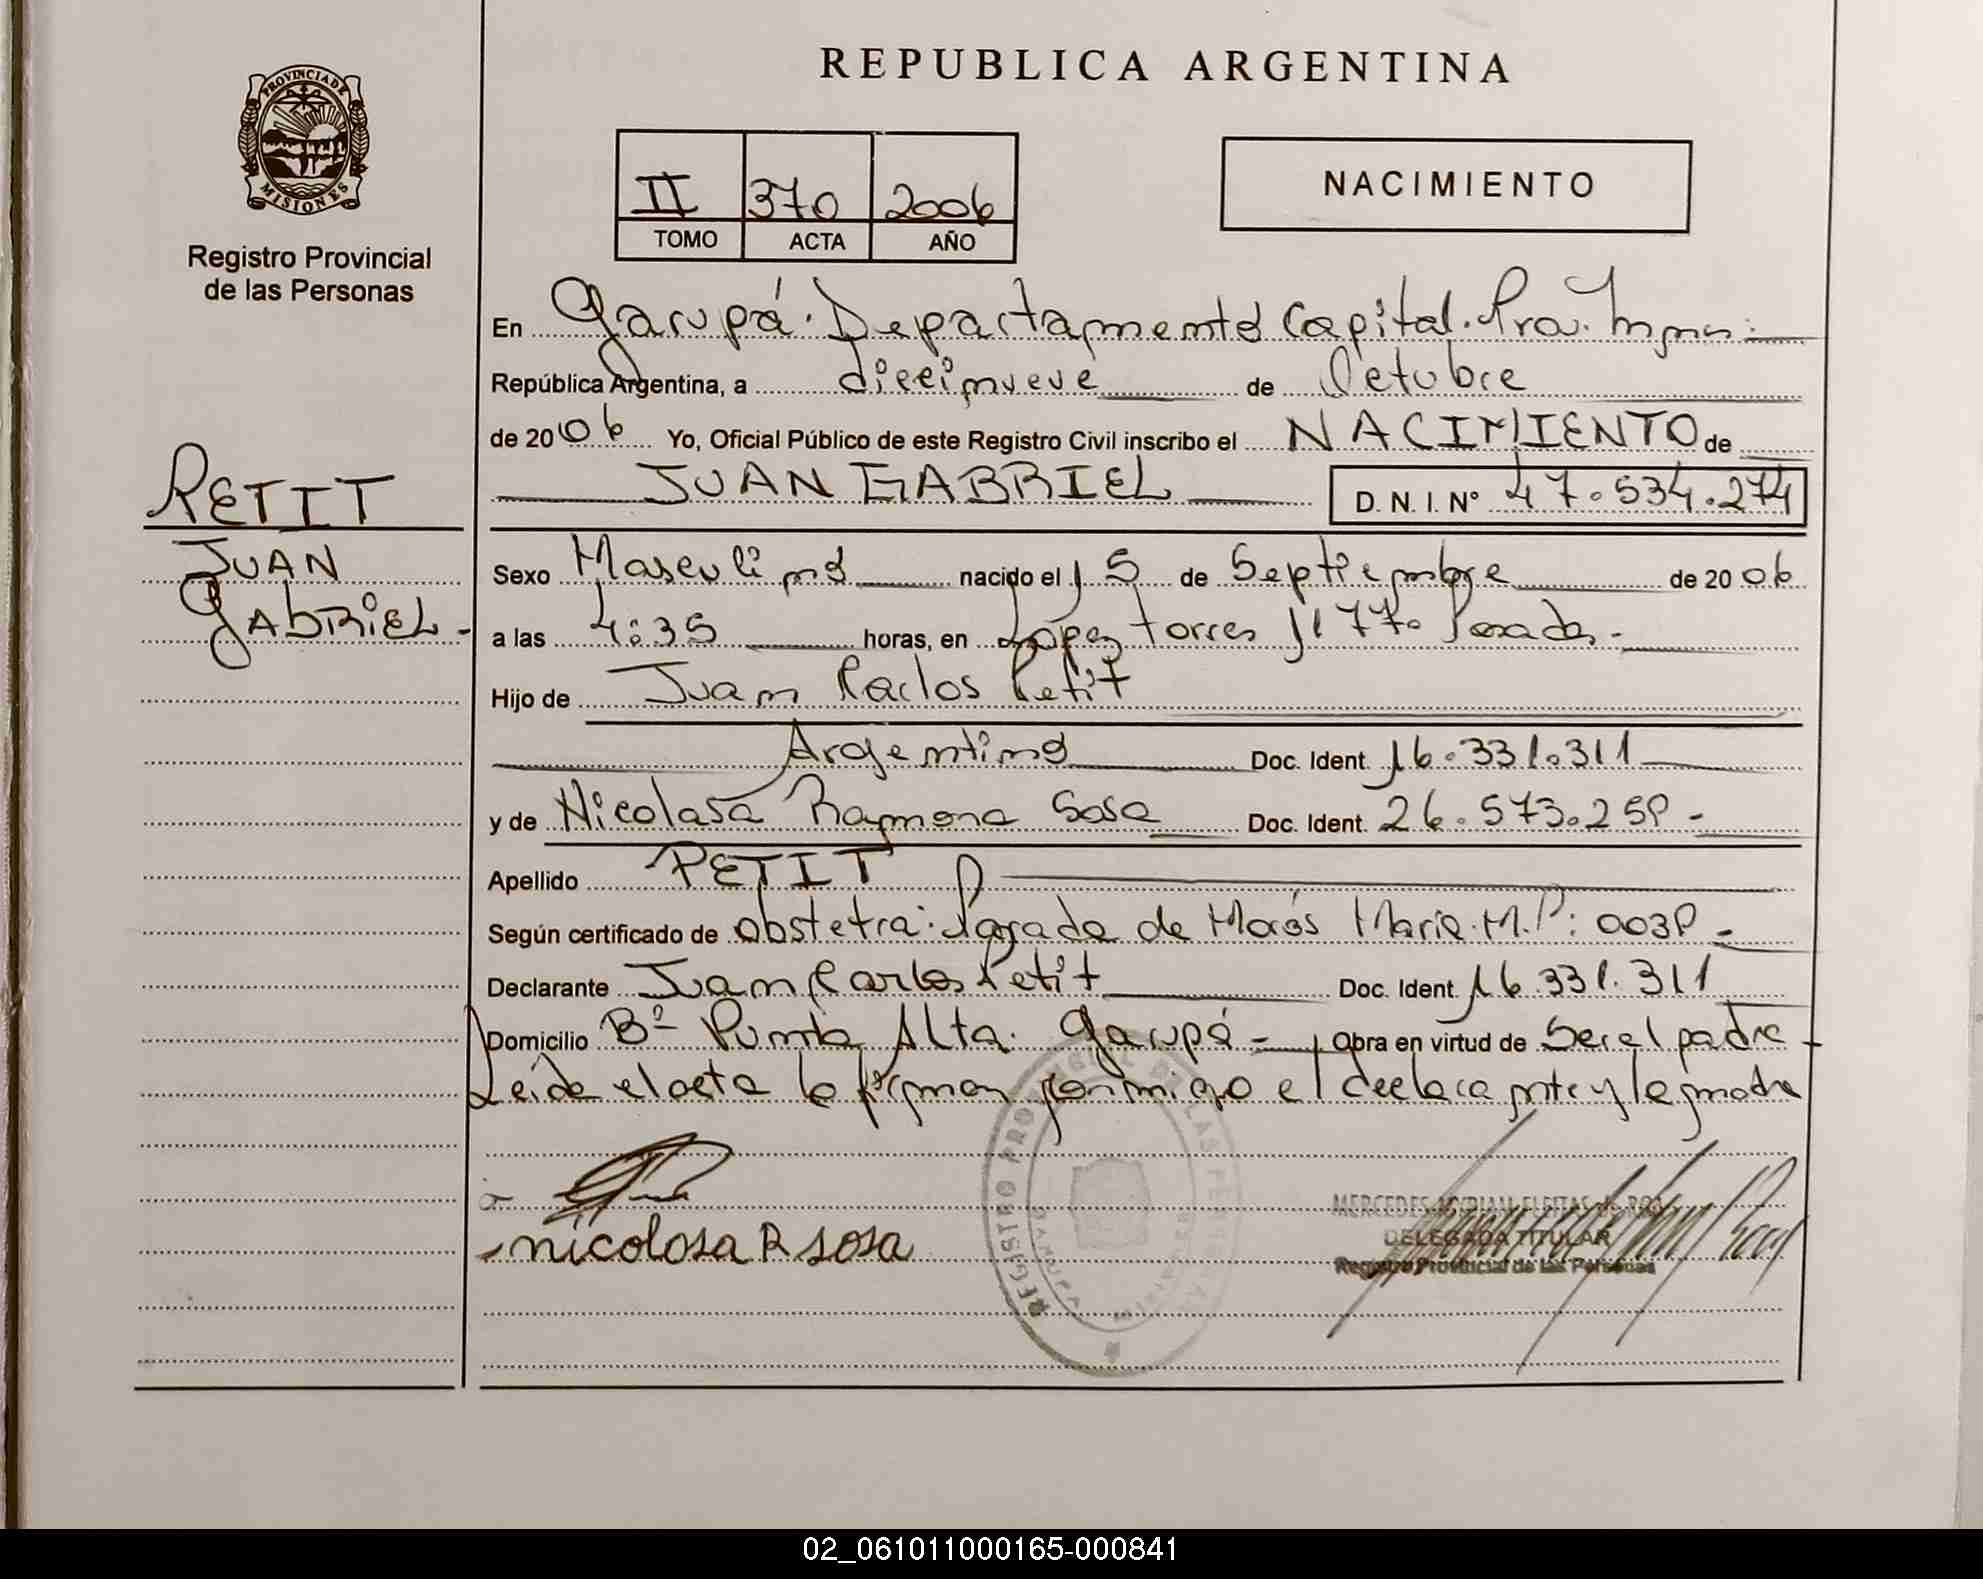 REPUBLICA ARGENTINA
PROVINCIA DE MISIONES
Registro Provincial
de las Personas
II 370 2006
TOMO ACTA AÑO
NACIMIENTO
En Garupá. Departamento Capital. Prov. Mnes.
República Argentina, a diecinueve de Octubre
de 2006 Yo, Oficial Público de este Registro Civil inscribo el NACIMIENTO de
JUAN GABRIEL D. N. I. Nº 47.534.274
PETIT
JUAN
GABRIEL.-
Sexo Masculino nacido el 15 de Septiembre de 2006
a las 4:35 horas, en López Torres 1177. Posadas.-
Hijo de Juan Carlos Petit
Argentino Doc. Ident. 16.331.311
y de Nicolasa Ramona Sosa Doc. Ident. 26.573.258.-
Apellido PETIT
Según certificado de obstetra: Posada de Maria. M.P: 0038.-
Declarante Juan Carlos Petit Doc. Ident. 16.331.311
Domicilio Bº Punta Alta. Garupá.- Obra en virtud de Ser el padre.-
Leida el acta la firman conmigo el declarante y la madre
nicolosa R sosa
REGISTRO PROVINCIAL DE LAS PERSONAS
MERCEDES MYRIAM FLEITAS de ROA
DELEGADA TITULAR
Registro Provincial de las Personas
02_061011000165-000841